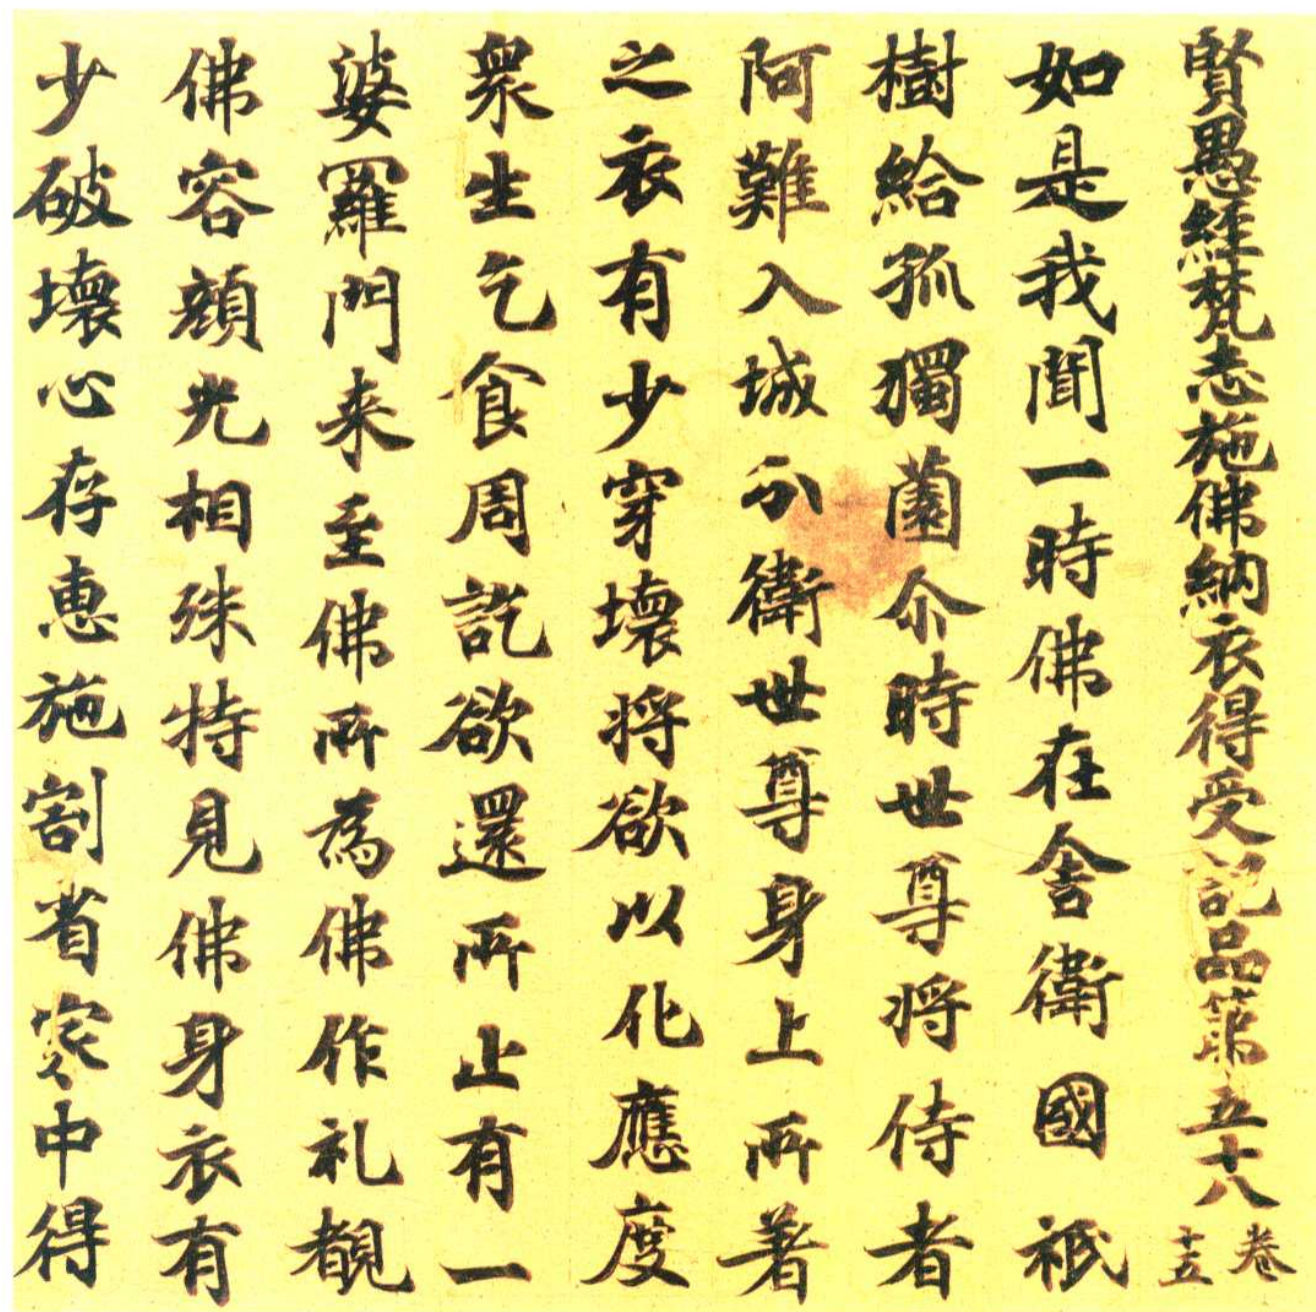 賢愚經梵志施佛納衣得受記品第五十八 卷十五
如是我聞一時佛在舍衛國祇
樹給孤獨薗尒時世尊將侍者
阿難入城分衛世尊身上所著
之衣有少穿壞将欲以化應度
衆生乞食周訖欲還所止有一
婆羅門来至佛所為佛作礼覩
佛容顔光相殊特見佛身衣有
少破壞心存惠施割省家中得